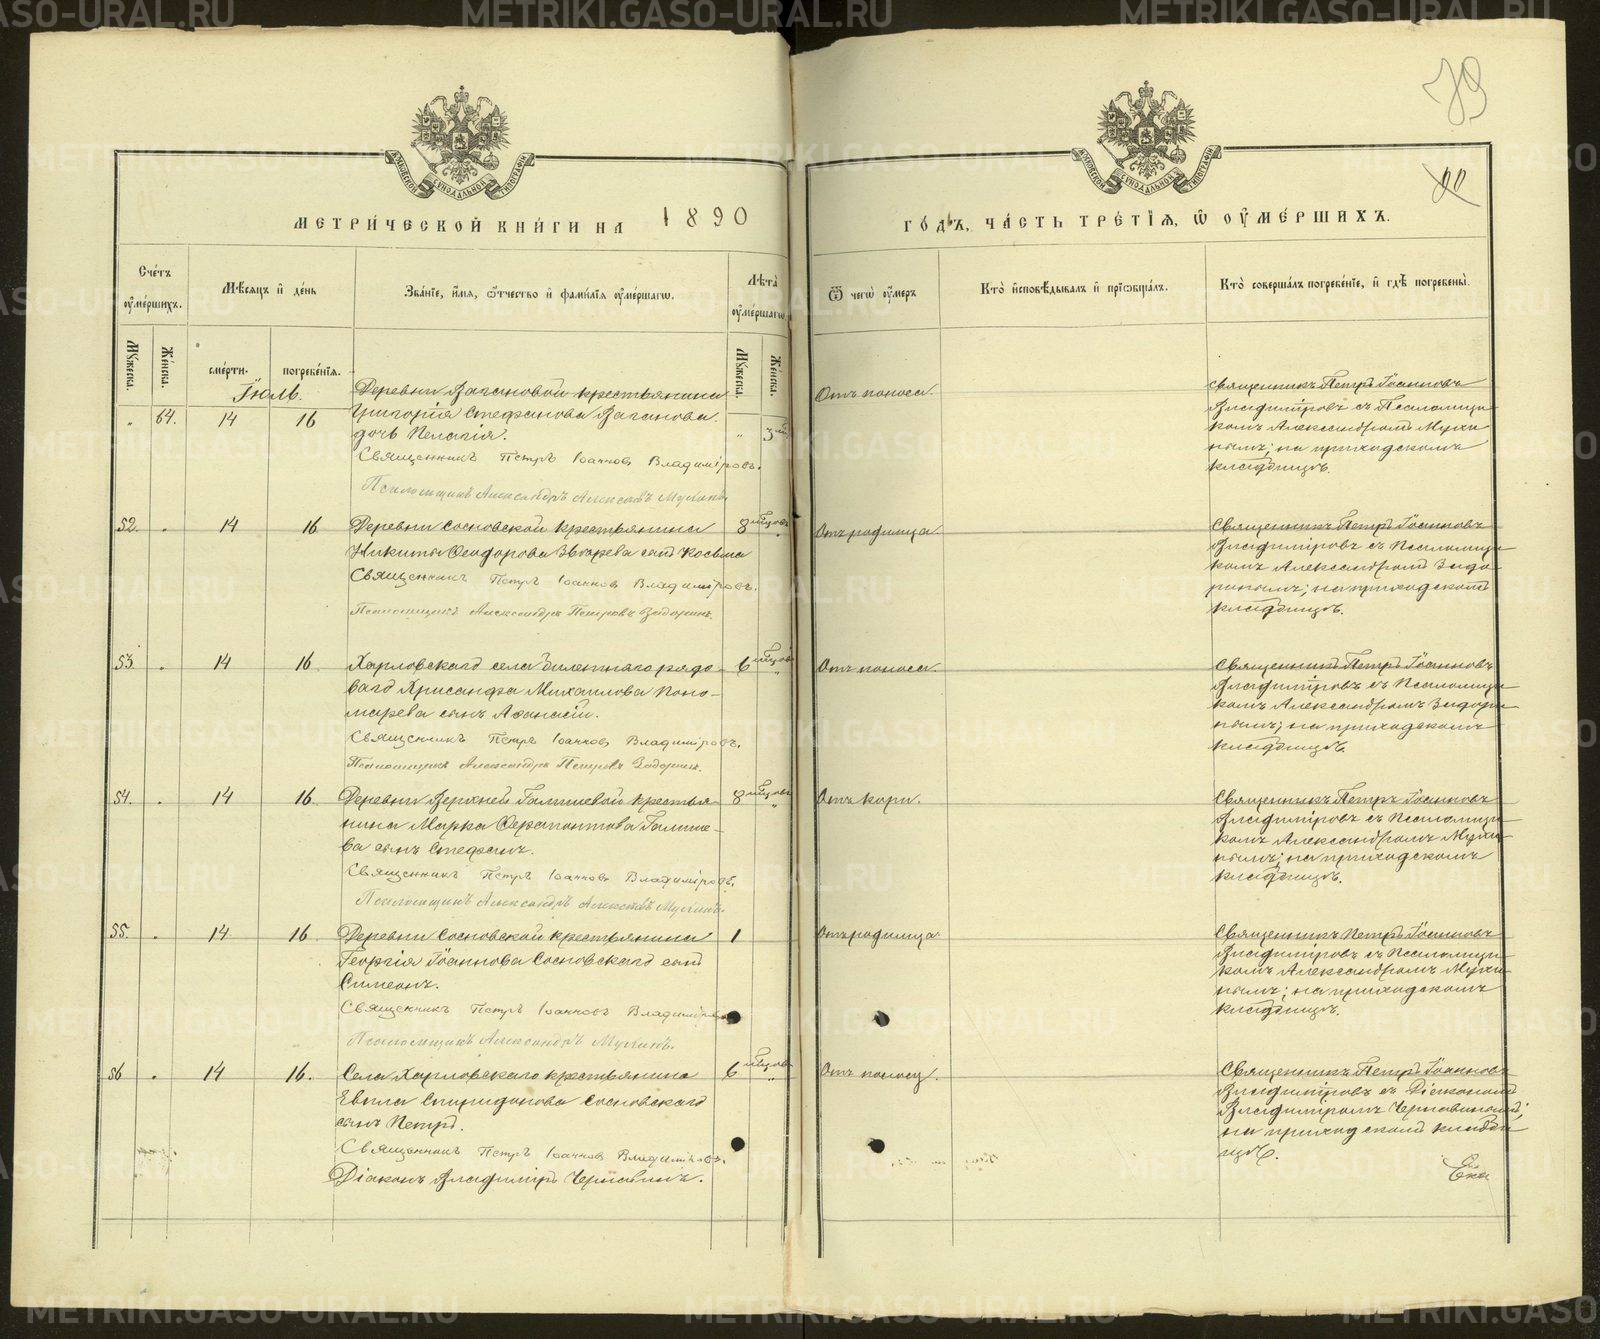 METRIKI.GASO-URAL.RU
79
МОСКОВСКОЙ СѴНОДАЛЬНОЙ ТИПОГРАФІИ
МОСКОВСКОЙ СѴНОДАЛЬНОЙ ТИПОГРАФІИ
МЕТРИ́ЧЕСКОЙ КНИ́ГИ НА 1890 ГО́ДЪ, ЧА́СТЬ ТРЕ́ТІѦ, Ѿ ОУ҆МЕ́РШИХЪ.
Сче́тъ оу҆ме́ршихъ.
Мꙋжеска.
Же́нска.
Мѣ́сѧцъ и҆ де́нь
сме́рти.
погребе́нїѧ.
Зва́нїе, и҆́мѧ, ѻ҆́тчество и҆ фами́лїѧ оу҆ме́ршагѡ.
Лѣ́та оу҆ме́ршагѡ.
Мꙋжеска.
Же́нска.
Ѿ чегѡ̀ оу҆́меръ
Кто̀ и҆сповѣ́дывалъ и҆ прїѡбща́лъ.
Кто̀ соверша́лъ погребе́нїе, и҆ гдѣ̀ погребены̀.
Іюль.
" 64. 14 16
Деревни Вагановой крестьянина
Григорія Стефанова Ваганова
дочь Пелагія.
" 3
Священникъ Петръ Іоанновъ Владиміровъ.
Псаломщикъ Александръ Мухинъ.
Отъ поноса.
Священникъ Петръ Іоанновъ
Владиміровъ съ Псаломщи-
комъ Александромъ Мухи-
нымъ; на приходскомъ
кладбищѣ.
52. " 14 16
Деревни Сосновской крестьянина
Никиты Ѳеодорова сынъ Косьма
8 мѣсяцовъ "
Священникъ Петръ Іоанновъ Владиміровъ.
Псаломщикъ Александръ Петровъ Задоринъ.
Отъ родимца.
Священникъ Петръ Іоанновъ
Владиміровъ съ Псаломщи-
комъ Александромъ Задо-
ринымъ; на приходскомъ
кладбищѣ.
53. " 14 16
Харловскаго села билетнаго рядо-
ваго Хрисанфа Михаилова Поно-
марева сынъ Аѳанасій.
6 мѣсяцовъ "
Священникъ Петръ Іоанновъ Владиміровъ.
Псаломщикъ Александръ Петровъ Задоринъ.
Отъ поноса.
Священникъ Петръ Іоанновъ
Владиміровъ съ Псаломщи-
комъ Александромъ Задори-
нымъ; на приходскомъ
кладбищѣ.
54. " 14 16
Деревни Верхней Галишевой крестья-
нина Марка Ѳерапонтова Галише-
ва сынъ Стефанъ.
8 мѣсяцовъ "
Священникъ Петръ Іоанновъ Владиміровъ.
Псаломщикъ Александръ Мухинъ.
Отъ кори.
Священникъ Петръ Іоанновъ
Владиміровъ съ Псаломщи-
комъ Александромъ Мухи-
нымъ; на приходскомъ
кладбищѣ.
55. " 14 16.
Деревни Сосновской крестьянина
Георгія Іоаннова Сосновскаго сынъ
Симеонъ.
1
Священникъ Петръ Іоанновъ Владиміровъ
Псаломщикъ Александръ Мухинъ.
Отъ родимца.
Священникъ Петръ Іоанновъ
Владиміровъ съ Псаломщи-
комъ Александромъ Мухи-
нымъ; на приходскомъ
кладбищѣ.
56 " 14 16.
Села Харловскаго крестьянина
Евпла Спиридонова Сосновскаго
сынъ Петръ.
6 мѣсяцовъ "
Священникъ Петръ Іоанновъ Владиміровъ.
Діаконъ Владиміръ Чернавинъ.
Отъ поносу.
Священникъ Петръ Іоанновъ
Владиміровъ съ Діакономъ
Владиміромъ Чернавинымъ;
на приходскомъ кладби-
щѣ.